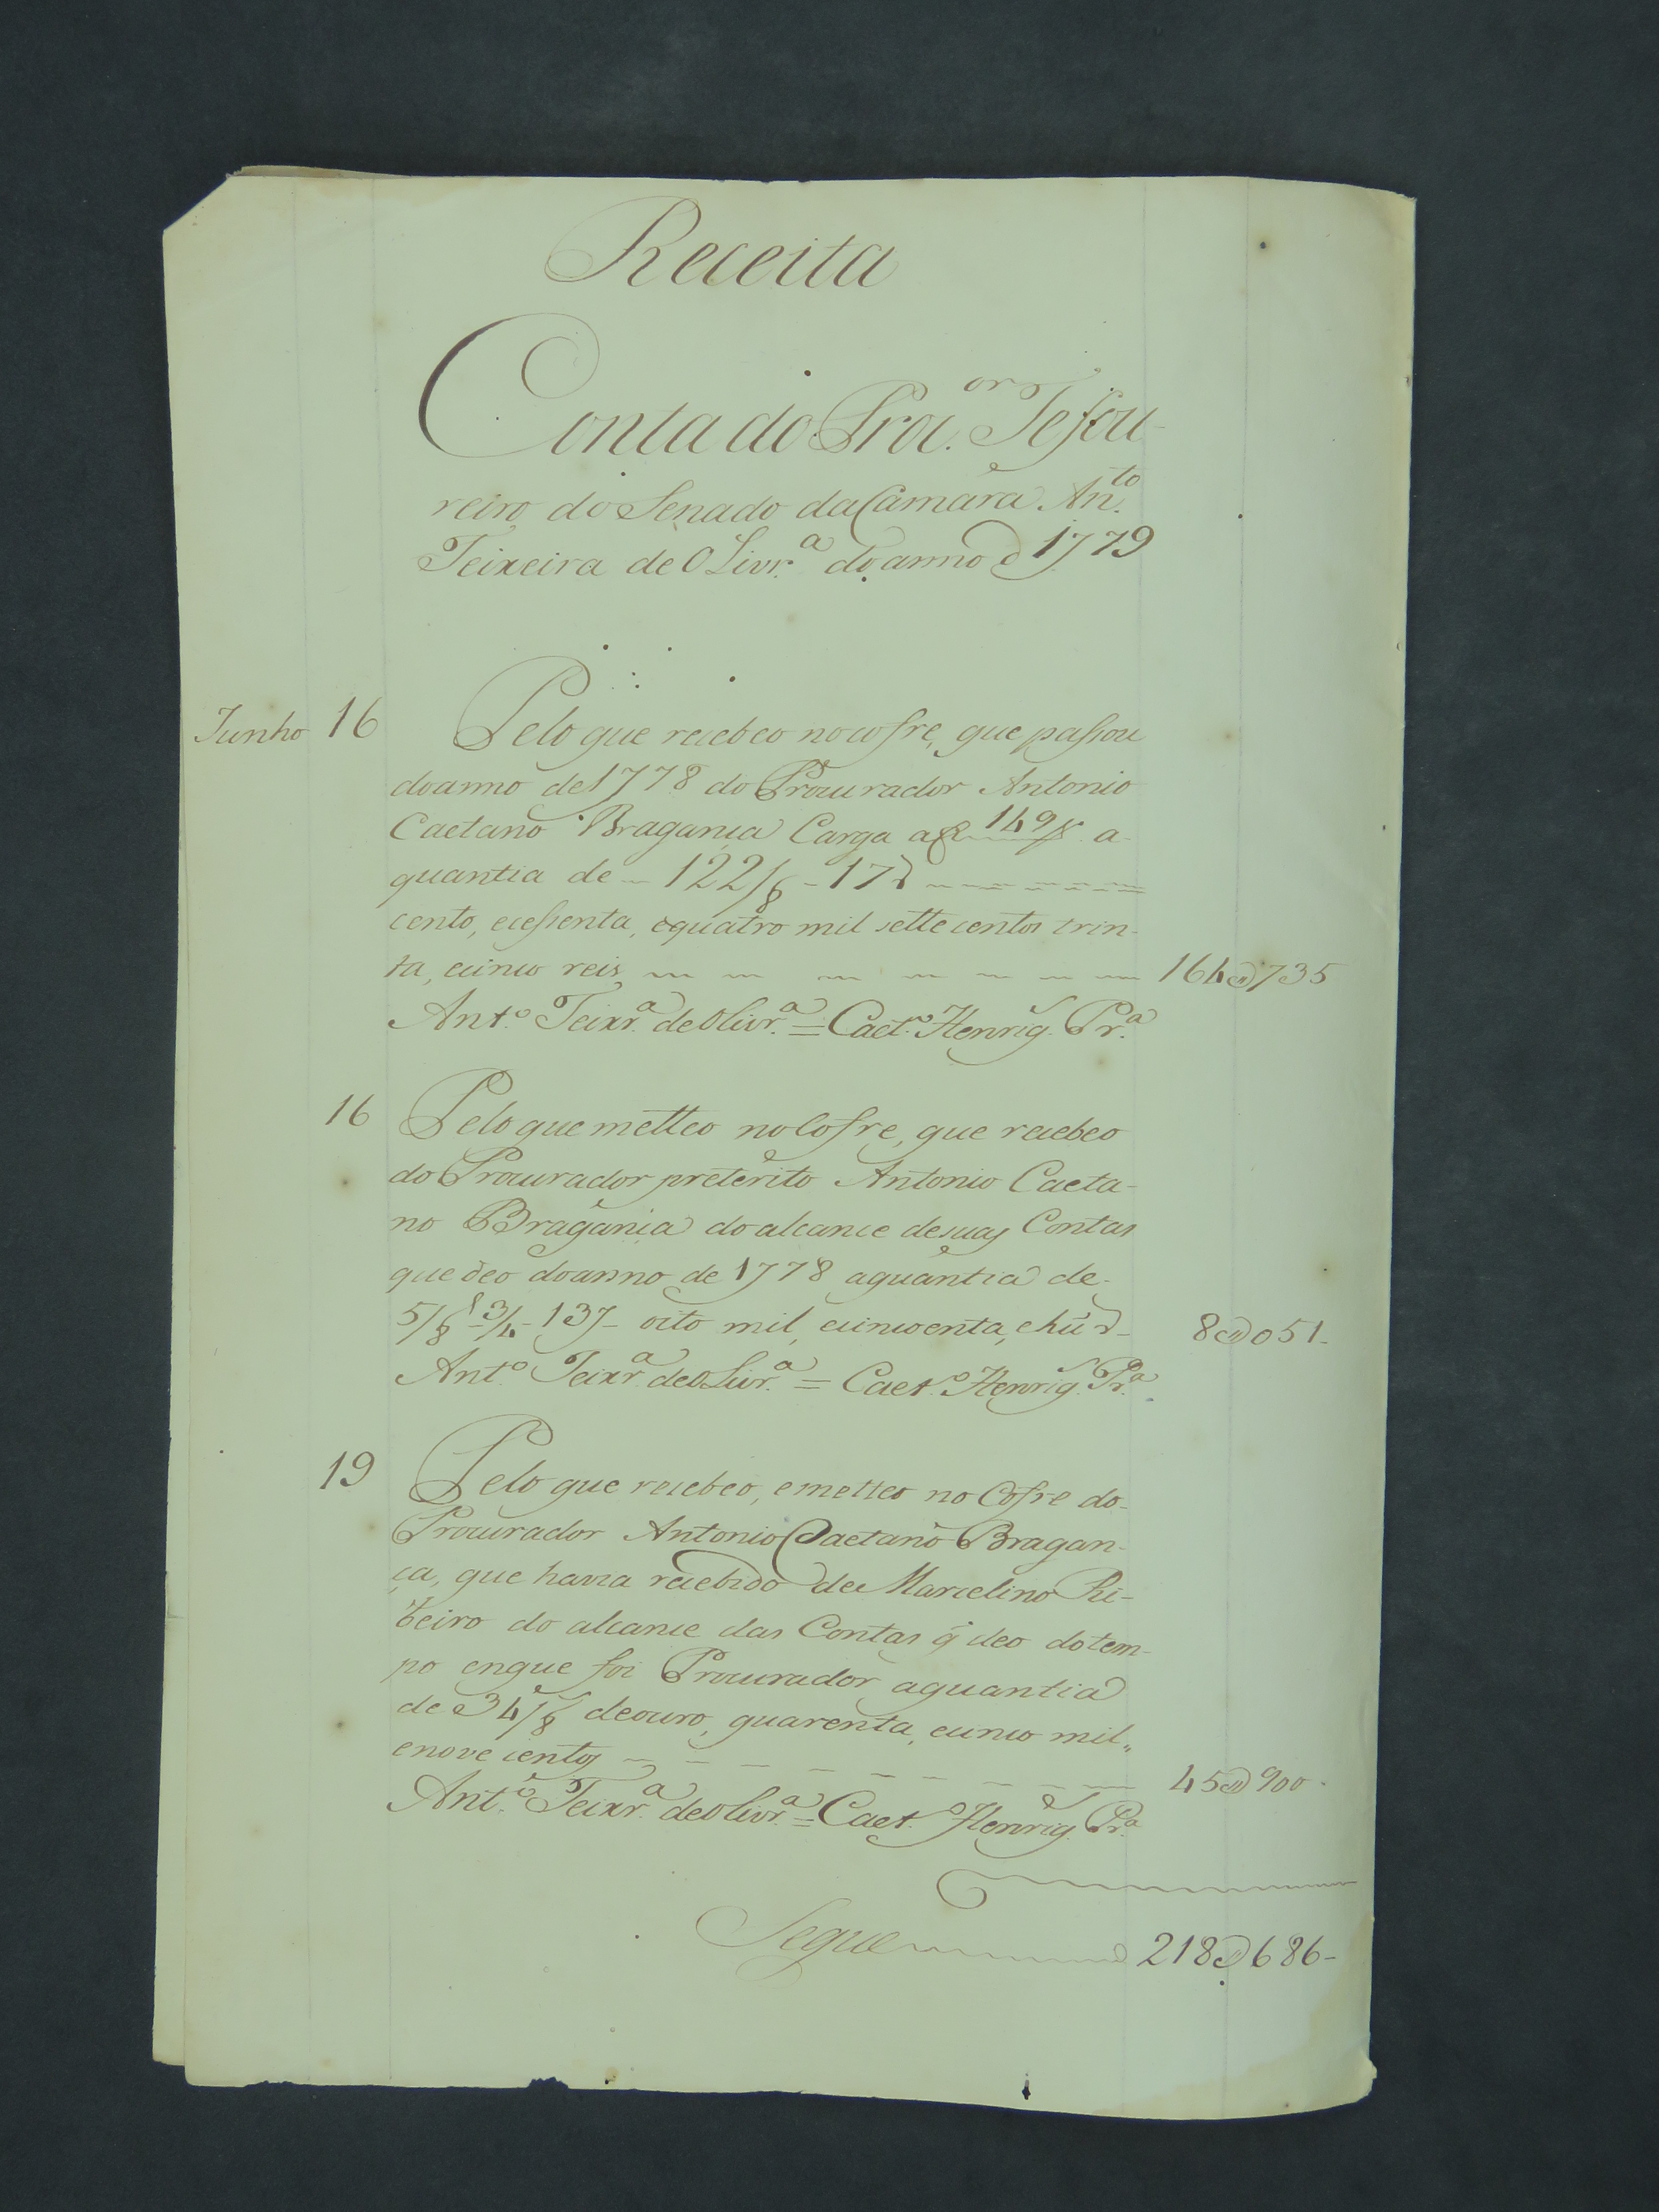 Receita
Conta do Proc.or Tesou-
reiro do Senado da Camara An.to
Teixeira de OLivr.a do anno d 1779
Junho 16 Pelo que recebeo no cofre, que passou
do anno de 1778 do Procurador Antonio
Caetano Bragança Carga a 149 a
quantia de 122/8 - 17
cento, e cessenta, e quatro mil sette centos trin-
ta, e cinco reis 164@735
Ant.o Teixr.a de Olivr.a = Caet.o Henriq. Pr.a
16 Pelo que metteo no Cofre, que recebeo
do Procurador preterito Antonio Caeta-
no Bragança do alcance de suas Contas
que deo do anno de 1778 a quantia de
5/8 3/4 - 13 oito mil, e cincoenta, e hũ 8@051
Ant.o Teixr.a de OLivr.a = Caet.o Henriq. Pr.a
19 Pelo que recebeo, e metteo no Cofre do
Procurador Antonio Caetano Bragan-
ça, que havia recebido de Marcelino Ri-
beiro do alcance das Contas q̃ deo do tem-
po enque foi Procurador a quantia
de 34/8 de ouro, quarenta, e cinco mil,,
e nove centos 45@900
Ant.o Teixr.a de Olivr.a = Caet.o Henriq. Pr.a
Segue 218@686